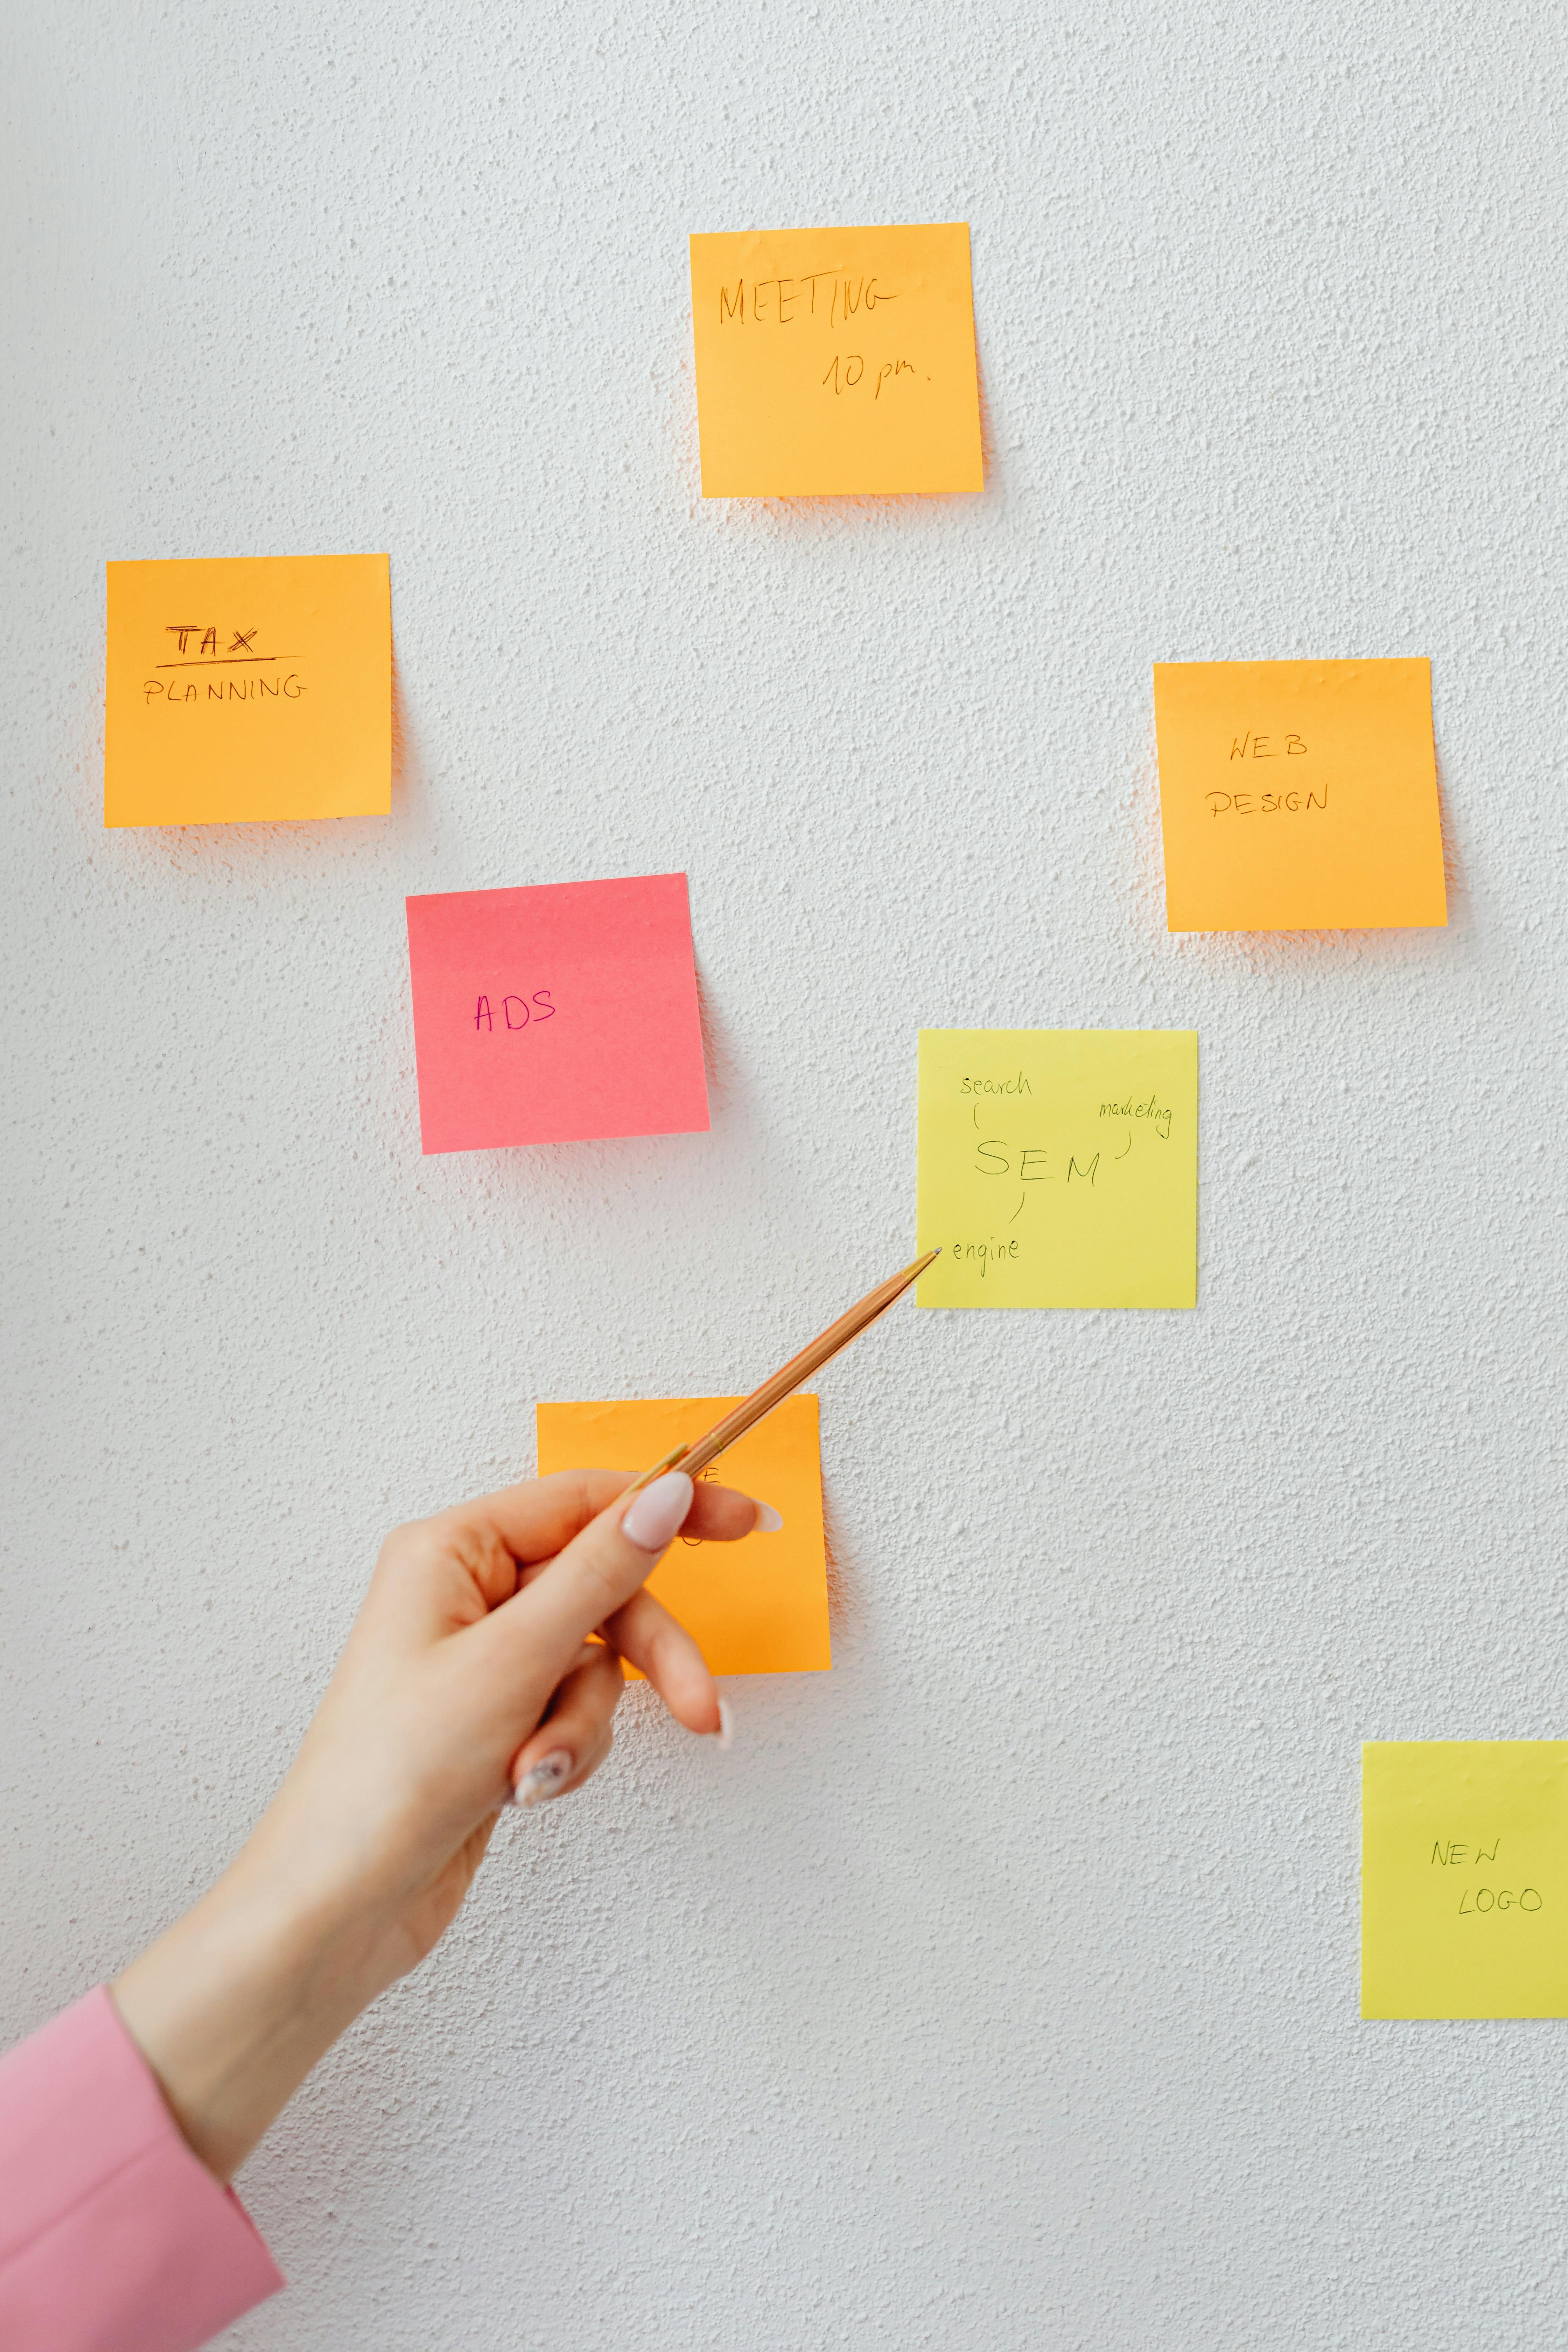 MEETING
10 pm.
TAX
PLANNING
WEB
DESIGN
ADS
search
marketing
SEM
engine
NEW
LOGO